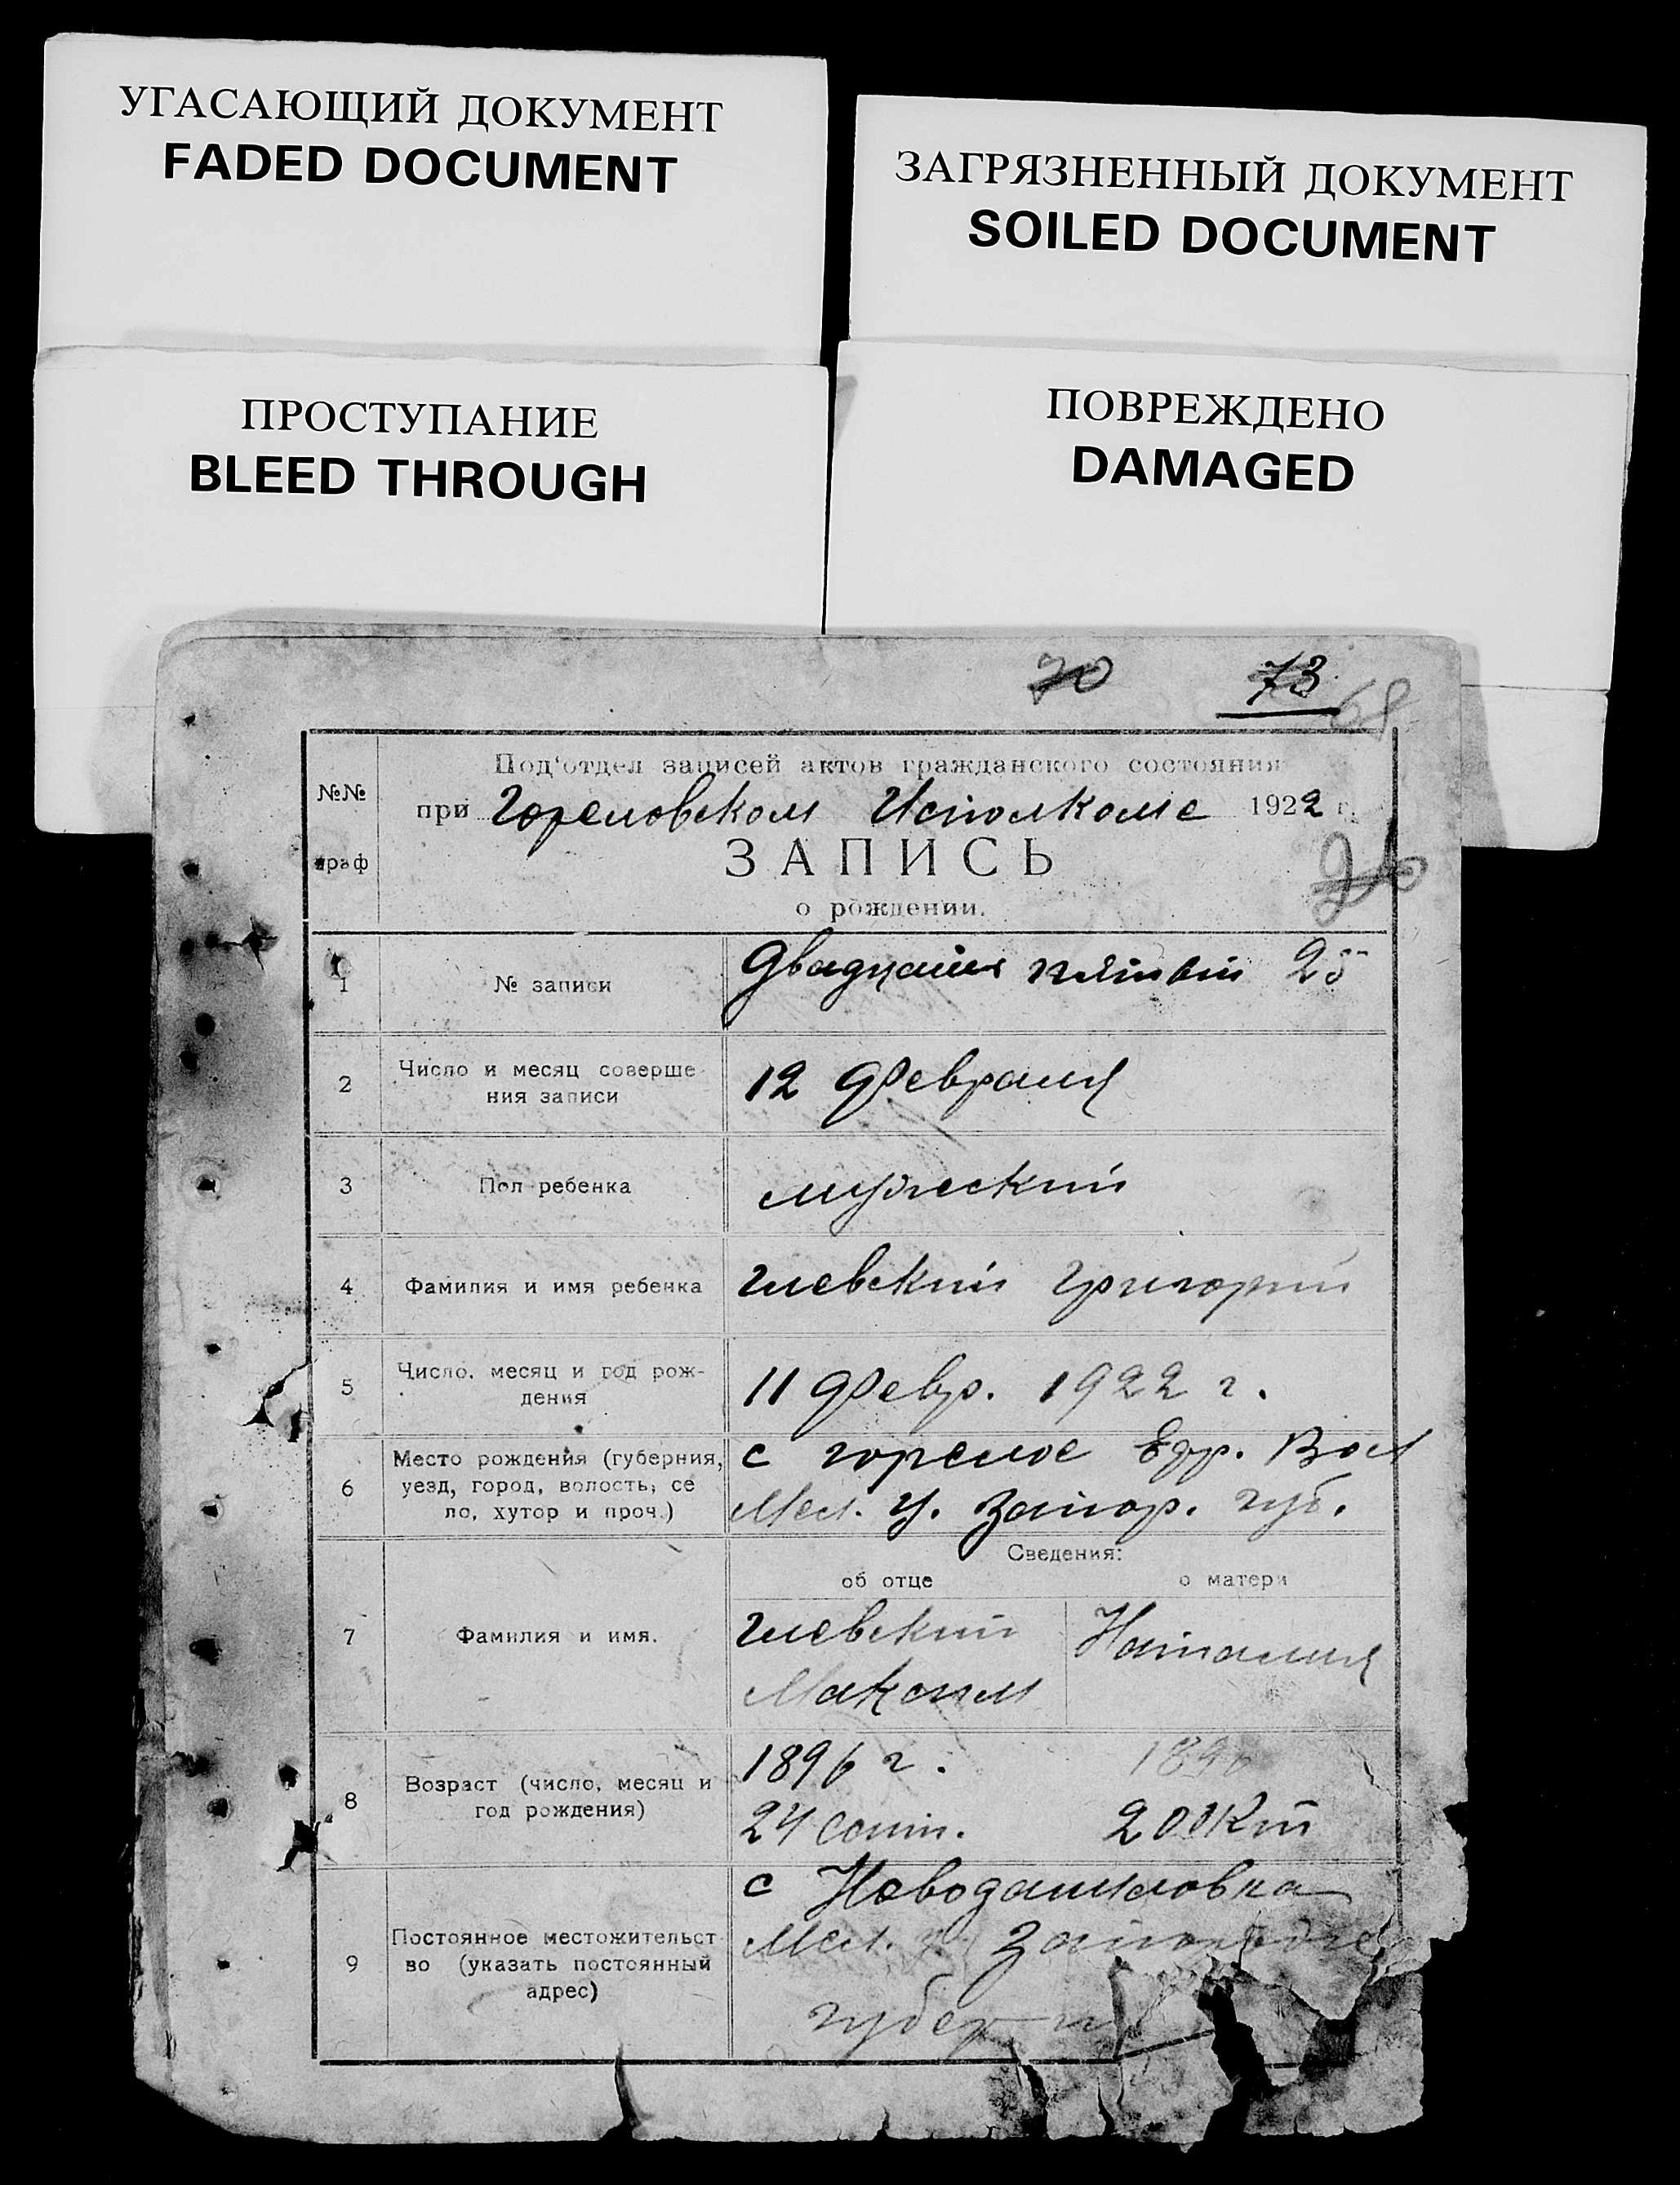 УГАСАЮЩИЙ ДОКУМЕНТ
FADED DOCUMENT
ЗАГРЯЗНЕННЫЙ ДОКУМЕНТ
SOILED DOCUMENT
ПРОСТУПАНИЕ
BLEED THROUGH
ПОВРЕЖДЕНО
DAMAGED
70 73 68
Под'отдел записей актов гражданского состояния
№№ при Гореловском Исполкоме 1922 г.
граф ЗАПИСЬ
о рождении.
1 № записи Двадцать пятый 25
2 Число и месяц соверше-
ния записи
12 Февраля
3 Пол ребенка мужеский
4 Фамилия и имя ребенка Гиевский Григорий
5 Число, месяц и год рож-
дения
11 Февр. 1922 г.
6 Место рождения (губерния,
уезд, город, волость, се
ло, хутор и проч.)
с горелое Ефр. Вол
Мел. у. Запор. губ.
Сведения:
об отце о матери
7 Фамилия и имя.
Гиевский
Максим
Наталия
8 Возраст (число, месяц и
год рождения)
1896 г. 1896
24 сент. 20 Окт
9 Постоянное местожительст-
во (указать постоянный
адрес)
с Новоданиловка
Мел. у.
губер